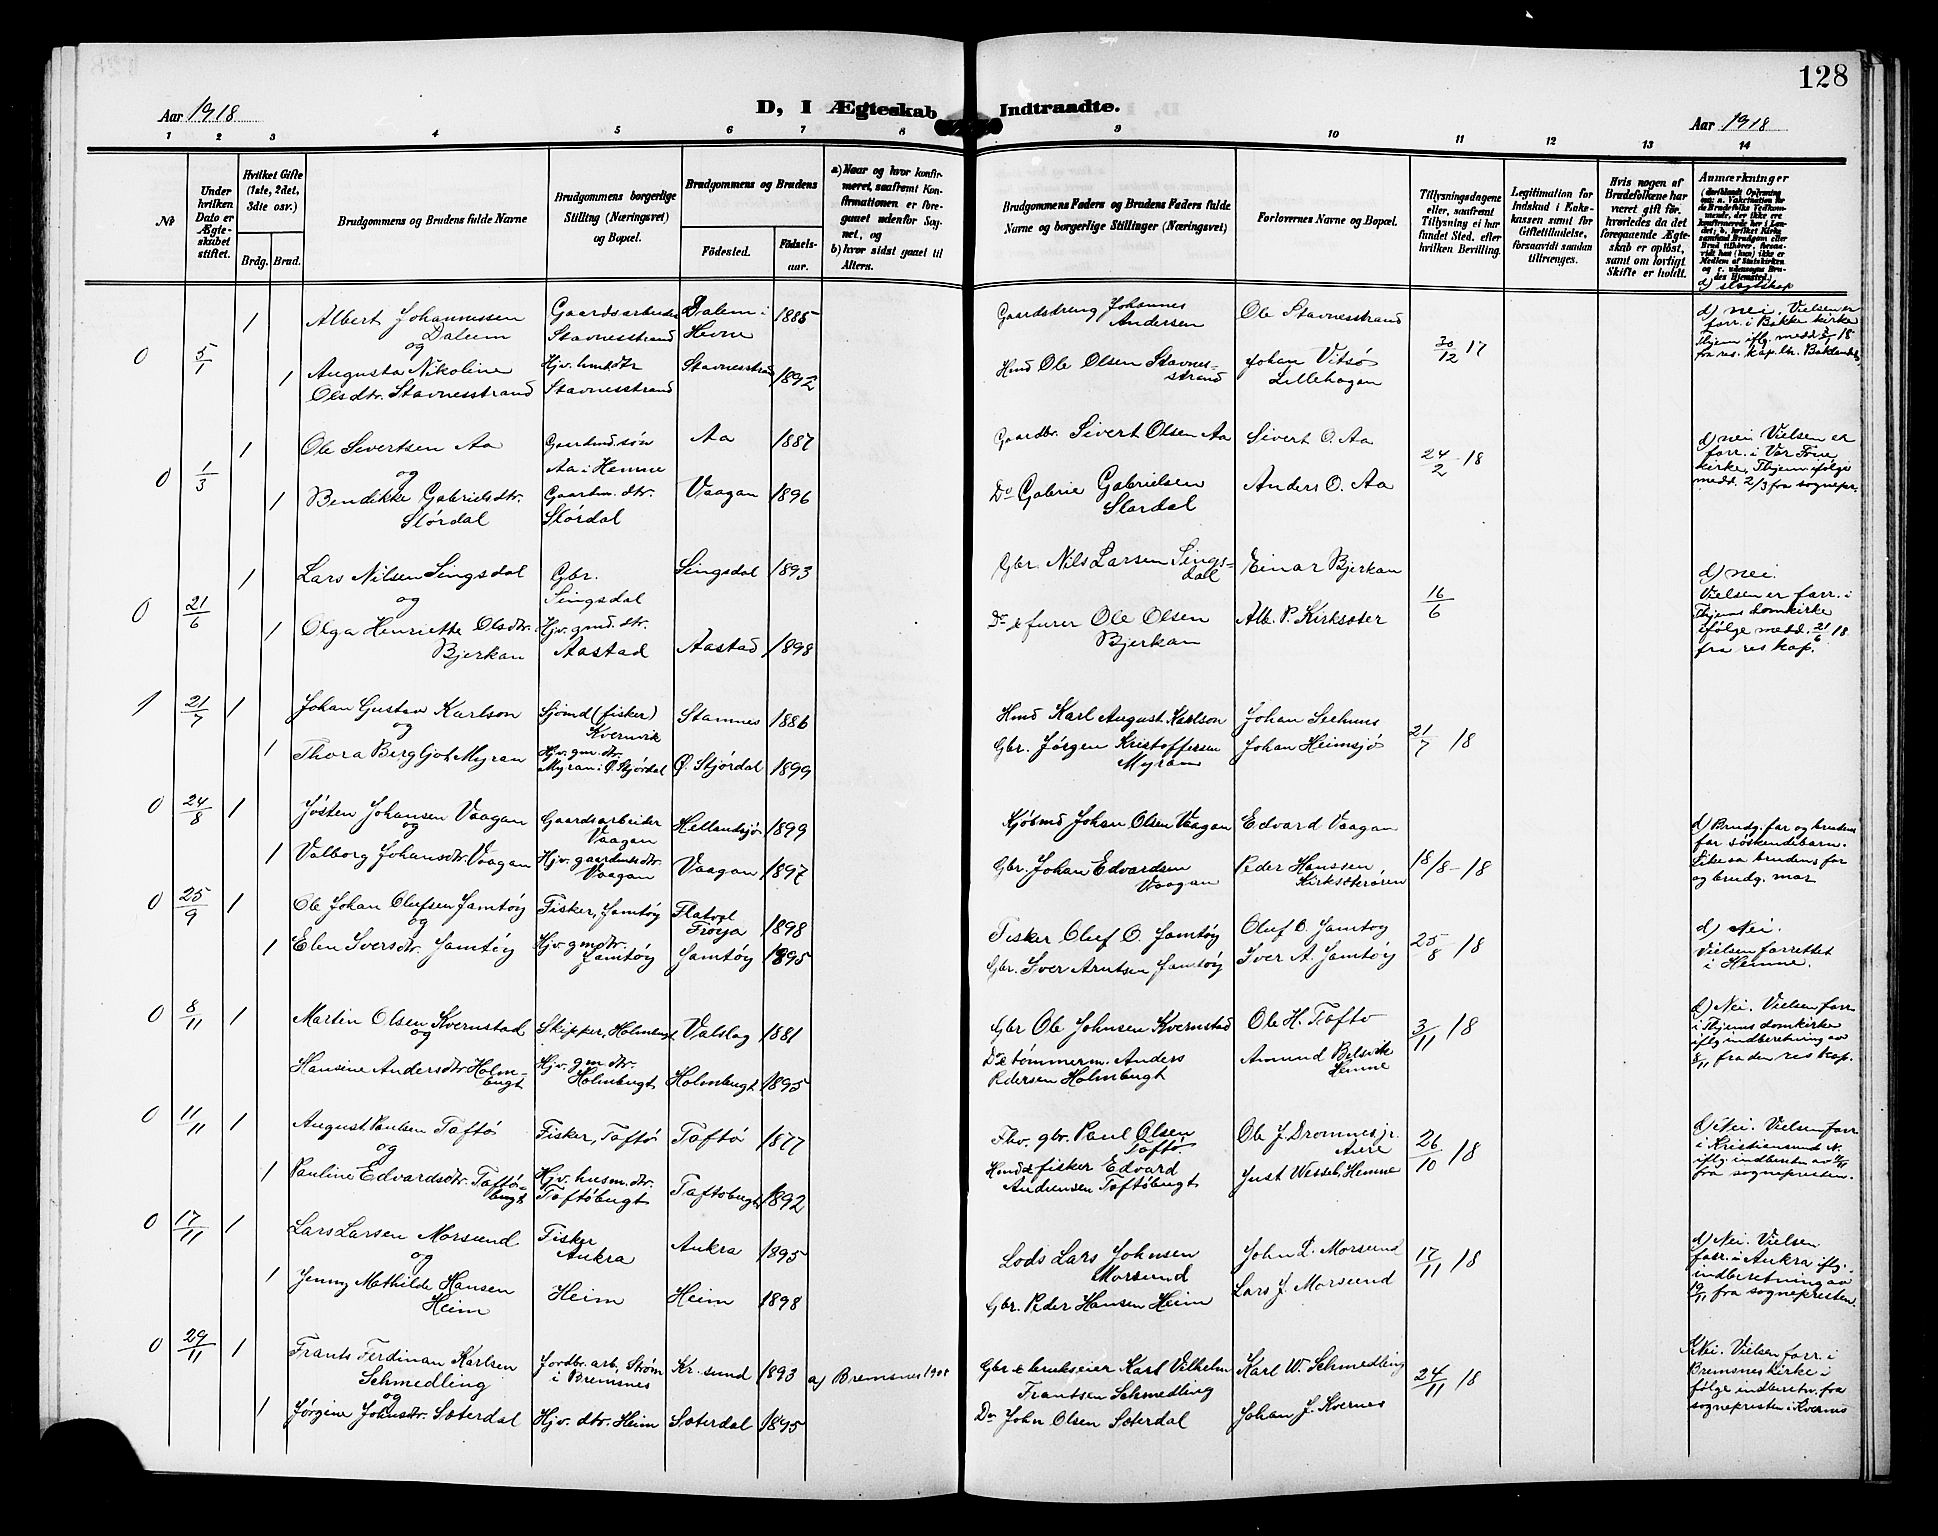 128
Aar 1918
D, I Ægteskab Indtraadte.
Aar 1918
1 2 3 4 5 6 7 8 9 10 11 12 13 14
№
Under hvilken Dato er Ægteskabet stiftet.
Hvilket Gifte (1ste, 2det, 3die osv.)
Brdg. Brud.
Brudgommens og Brudens fulde Navne
Brudgommens borgerlige Stilling (Næringsvei) og Bopæl.
Brudgommens og Brudens
Fødested. Fødselsaar.
a) Naar og hvor konfirmeret, saafremt Konfirmationen er foregaaet udenfor Sognet, og
b) hvor sidst gaaet til Alters.
Brudgommens Faders og Brudens Faders fulde Navne og borgerlige Stillinger (Næringsvei)
Forlovernes Navne og Bopæl.
Tillysningsdagene eller, saafremt Tillysning ei har fundet Sted, efter hvilken Bevilling.
Legitimation for Indskud i Enkekassen samt for Giftetilladelse, forsaavidt saadan tiltrænges.
Hvis nogen af Brudefolkene har været gift før, hvorledes da det foregaaende Ægteskab er opløst, samt om lovligt Skifte er holdt.
Anmærkninger
d) slegtskap
0 5/1 1 Albert Johannessen Dalum Gaardsarbeider Stavnesstrand Dalem i Hevne 1885 Gaardstreng Johannes Andersen Ole Stavnesstrand 30/12 17
og
1 Augusta Nikoline Olsdtr. Stavnesstrand Hjv. hmdtr Stavnesstrand Stavnesstrand 1892 Hmd Ole Olsen Stavnesstrand Johan Vitsø Lillehagen
d) nei. Vielsen er
forr. i Bakke kirke
Thjem iflg. medd. 5/1 18
fra res. kap. ltr. Baklandet
0 1/3 1 Ole Sivertsen Aa Gaardmd. søn Aa i Hemne Aa 1887 Gaardbr. Sivert Olsen Aa Sivert O. Aa 24/2-18
og
1 Bendikke Gabrielsdtr. Slørdal Gaardm. dtr. Slørdal Vaagan 1896 Do Gabrie Gabrielsen Slørdal Anders O. Aa
d) nei Vielsen er
forr. i Vor Frue
kirke, Thjem ifølge
medd. 2/3 fra sognepr.
0 21/6 1 Lars Nilsen Singsdal Gbr. Singsdal Singsdal 1893 Gbr. Nils Larsen Singsdal Einar Bjerkan 16/6
og
1 Olga Henriette Olsdtr. Bjerkan Hjv. gmd. dtr. Aastad Aastad 1898 Do & furer Ole Olsen Bjerkan Alb. P. Kirksæter
d) nei.
Vielsen er forr. i
Thjems domkirke
ifølge medd. 21/6 18
fra res kap.
1 21/7 1 Johan Gustav Karlson Sjømd (fisker) Kvernvik Stamnes 1886 Hmd Karl August Karlson Johan Seehuus 21/7 18
og
1 Thora Bergljot Myran Hjv. gm. dtr. Myran i Ø. Stjørdal Ø. Stjørdal 1899 Gbr. Jørgen Kristoffersen Myran Johan Heimsjø
0 24/8 1 Jøsten Johansen Vaagan Gaardsarbeider Vaagan Hellandsjø 1899 Kjøbmd Johan Olsen Vaagan Edvard Vaagan 18/8-18
og
1 Valborg Johansdtr. Vaagan Hjv. gaardmsdtr. Vaagan Vaagan 1897 Gbr. Johan Edvardsen Vaagan Peder Hanssen Kirksæterøren
d) Brudg. far og brudens
far søskendebarn.
Likesaa brudens far
og brudg. mor
0 25/9 1 Ole Johan Olufsen Jamtøy Fisker, Jamtøy Flatvæl Frøya 1898 Fisker Oluf O. Jamtøy Oluf O. Jamtøy 25/8 18
og
1 Elen Iversdtr. Jamtøy Hjv. gmdtr. Jamtøy Jamtøy 1895 Gbr. Iver Arntsen Jamtøy Iver A. Jamtøy
d) Nei.
Vielsen forrettet
i Hemne.
0 8/11 1 Martin Olsen Kvernstad Skipper, Holmbugt Valslag 1881 Gbr Ole Johnsen Kvernstad Ole H. Taftø 3/11 18
og
Hansine Andersdtr. Holmbugt Hjv. gm. dtr. Holmbugt Holmbugt 1895 Do & tømmerm. Anders Pedersen Holmbugt Amund Belsvik Hemne
d) Nei. Vielsen forr.
i Thjems domkirke
iflg indberetning av
8/11 fra den res kap.
0 11/11 1 August Paulsen Taftø Fisker, Taftø Taftø 1877 Fhv. gbr. Paul Olsen Taftø. Ole J. Dromnes jr. Aure 26/10 18
og
1 Pauline Edvardsdtr. Taftøbugt Hjv. husm. dtr. Taftøbugt Taftøbugt 1892 Husmd & fisker Edvard Andreasen Taftøbugt Just Wessel, Hemne
d) Nei. Vielsen forr.
i Kristiansund N.
iflg. indberetn. av 11/11
fra sognepresten.
0 17/11 1 Lars Larsen Morsund Fisker Aukra Aukra 1895 Lods Lars Johnsen Morsund John L. Morsund 17/11 18
og
1 Jenny Mathilde Hansen Heim Heim Heim 1898 Gbr. Peder Hansen Heim Lars J. Morsund
d) Nei. Vielsen
forr. i Aukra iflg.
indberetning av
19/11 fra sognepresten.
0 29/11 1 Frants Ferdinan Karlsen Schmedling Jordbr. arb. Strøm i Bremsnes Kr. sund 1893 a) Bremsnes 1908 Gbr & brukseier Karl Vilhelm Frantsen Schmedling Karl W. Schmedling 24/11 18
og
1 Jørgine Johnsdtr. Sæterdal Hjv. dtr. Heim Sæterdal 1895 Do John Olsen Sæterdal Johan J. Kvernes
d) Nei. Vielsen forr. i
Bremsnes Kirke i
følge indberetn. fra
sognepresten i Kvernes